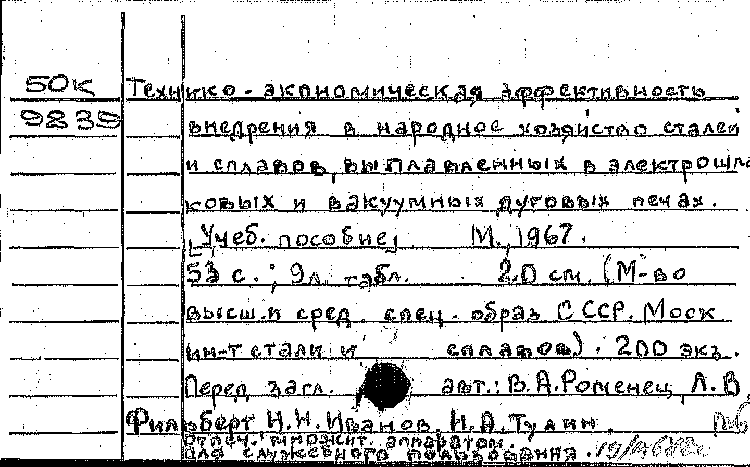 50К Технико-экономическая эффективность
9839 внедрения в народное хозяйство сталей
и сплавов, выплавленных в электрошла
ковых и вакуумных дуговых печах.
[Учеб. пособие] М., 1967.
53 с.; 9 л. табл. 20 см. (М-во
высш. и сред. спец. образ. СССР. Моск
ин-т стали и сплавов). 200 экз.
Перед загл. авт.: В.А.Роменец, Л.В.
Фильберт, Н.Н.Иванов, Н.А.Тулин.
Отпеч. множит. аппаратом.
Для служебного пользования.